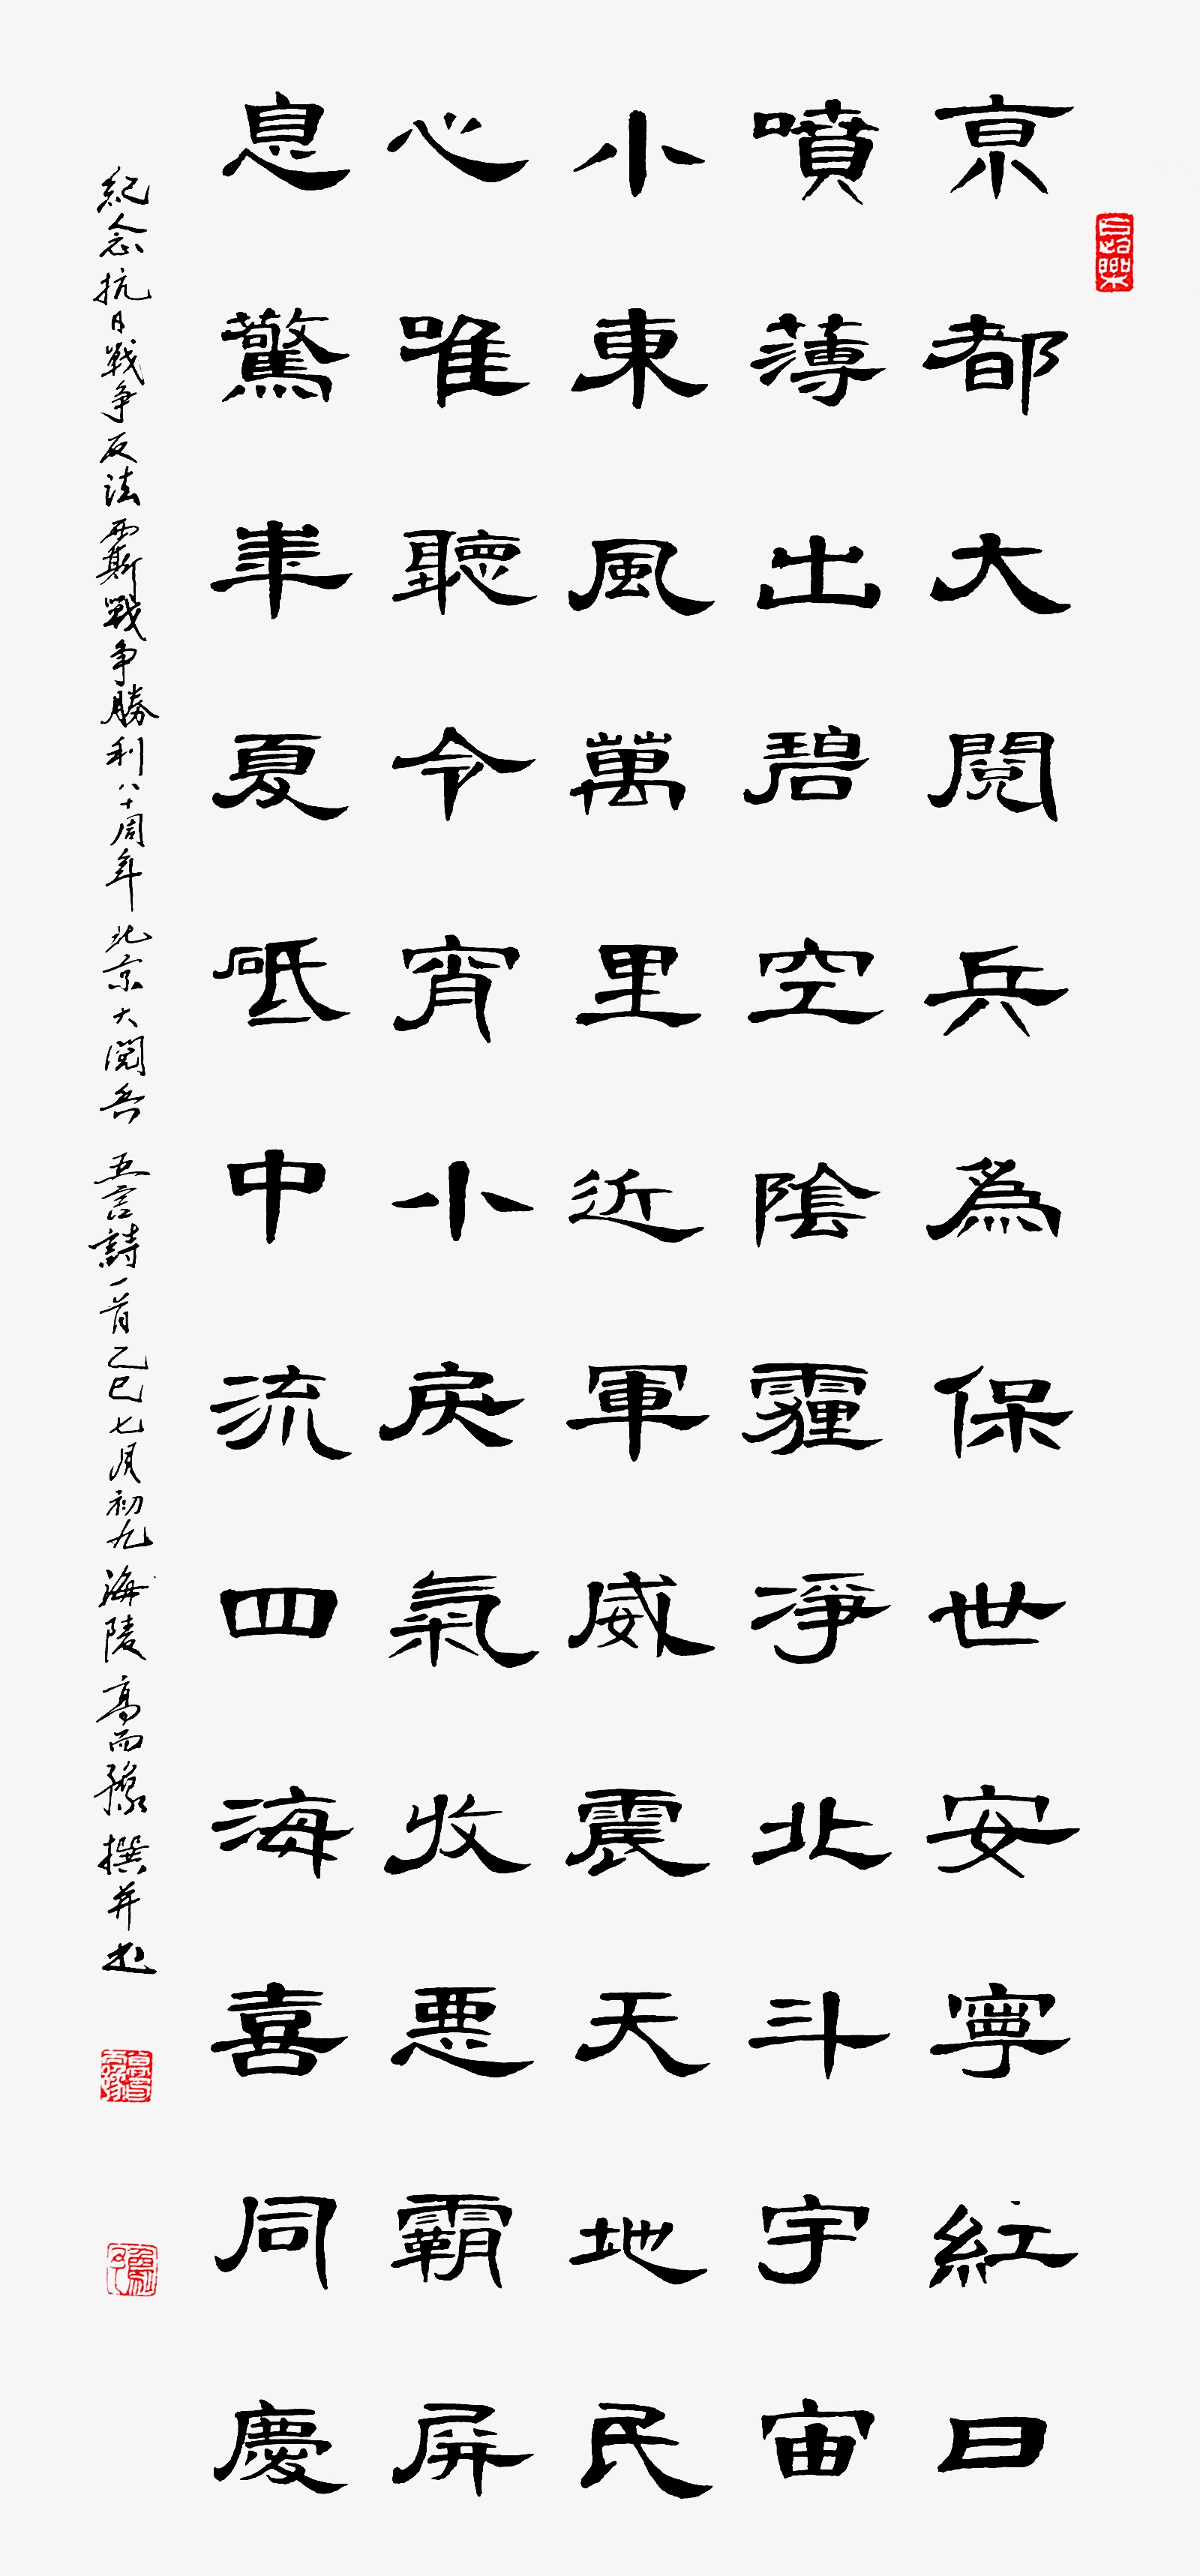 京都大閱兵為保世安寧紅日
噴薄出碧空陰霾淨北斗宇宙
小東風萬里近軍威震天地民
心唯聽令宵小戾氣收悪霸屏
息驚華夏砥中流四海喜同慶
紀念抗日戰争反法西斯戰争勝利八十周年北京大閱兵 五言詩一首乙巳七月初九海陵高而豫撰并书